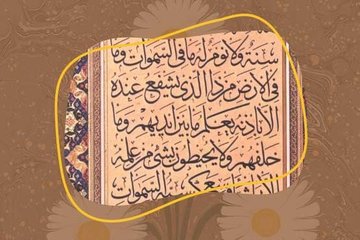 سنة ولا نوم له ما في السموات وما
في الارض من ذا الذي يشفع عنده
الا باذنه يعلم ما بين ايديهم وما
خلفهم ولا يحيطون بشئ من علمه
السموات